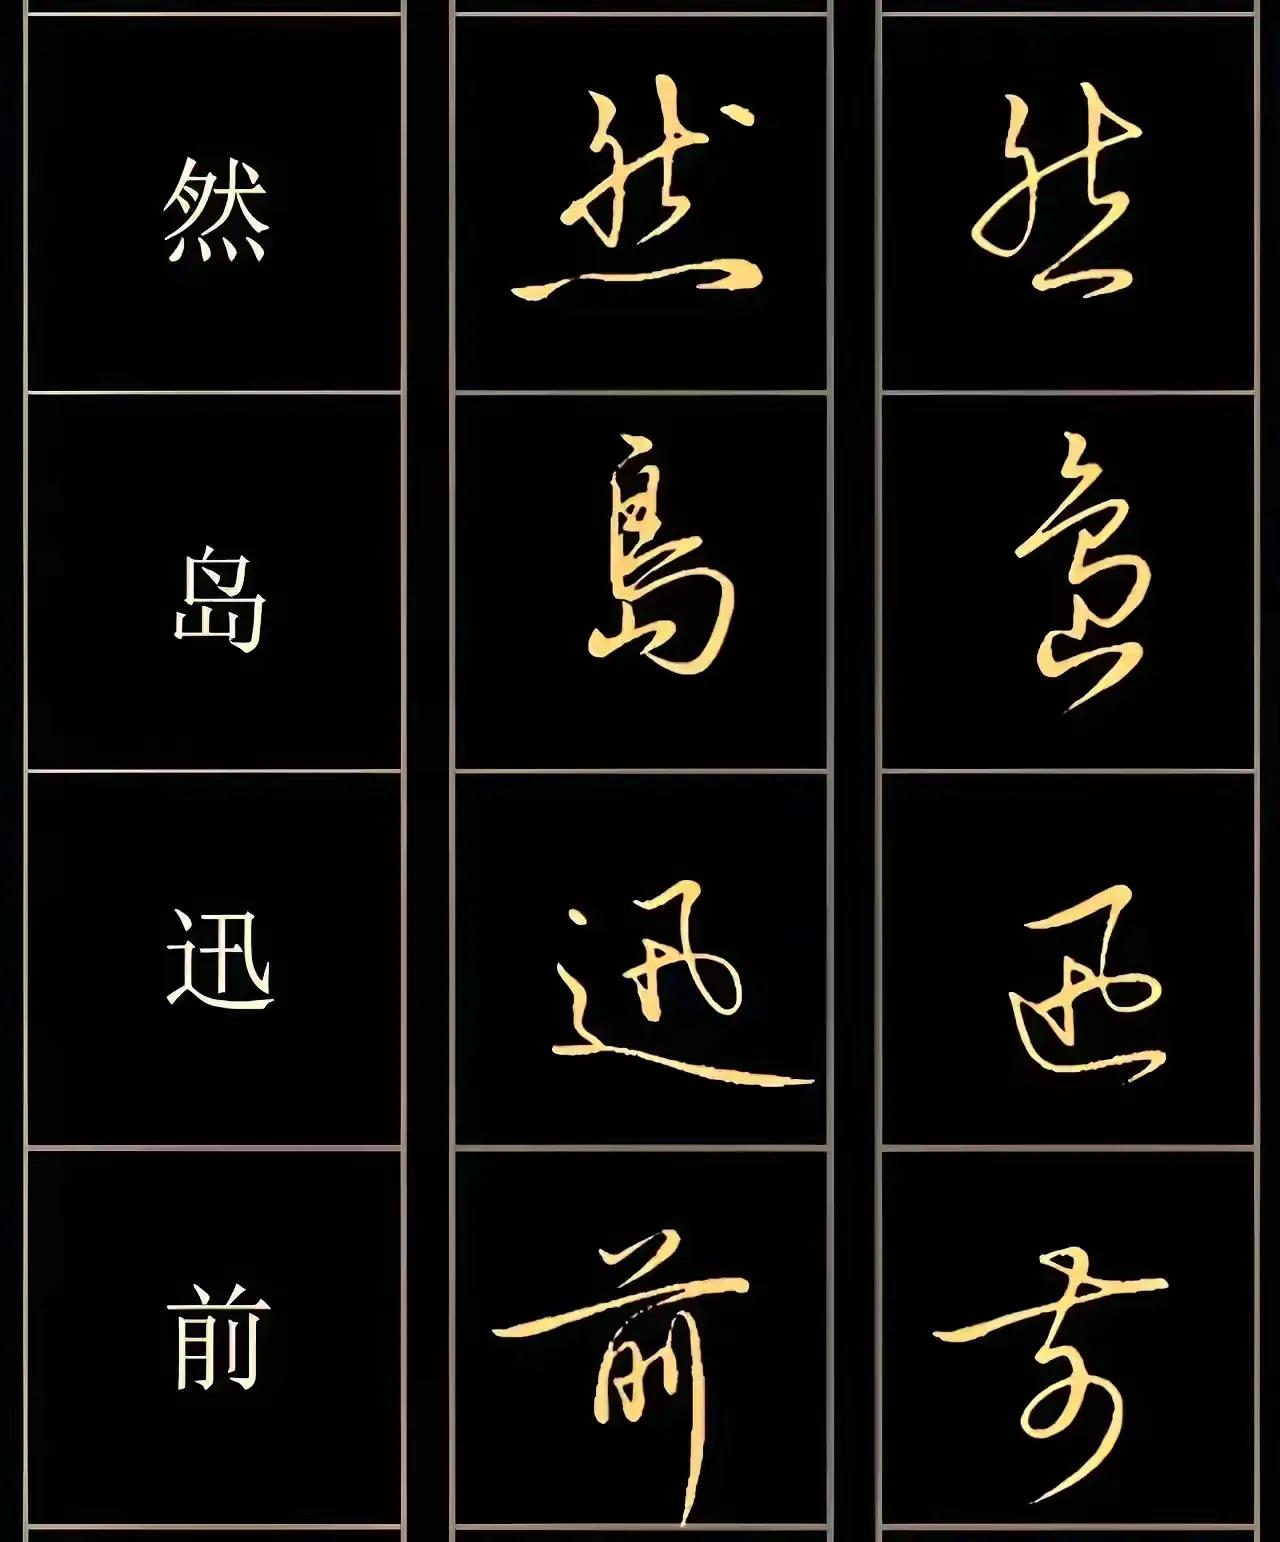 然 然 然
岛 島 島
迅 迅 迅
前 前 前